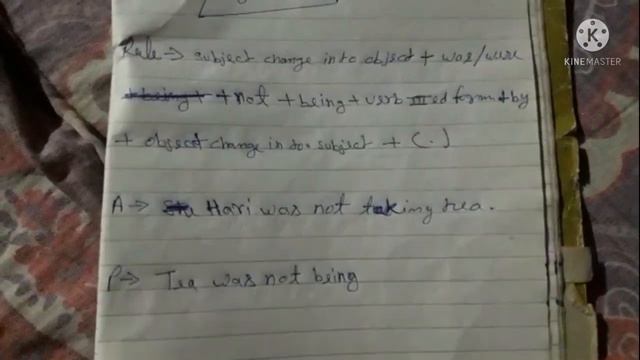 KINEMASTER
Rule → subject change into object + was/were
+being+ + not + being + verb III ed form + by
+ object change into subject + (.)
A → Hari was not taking tea.
P → Tea was not being